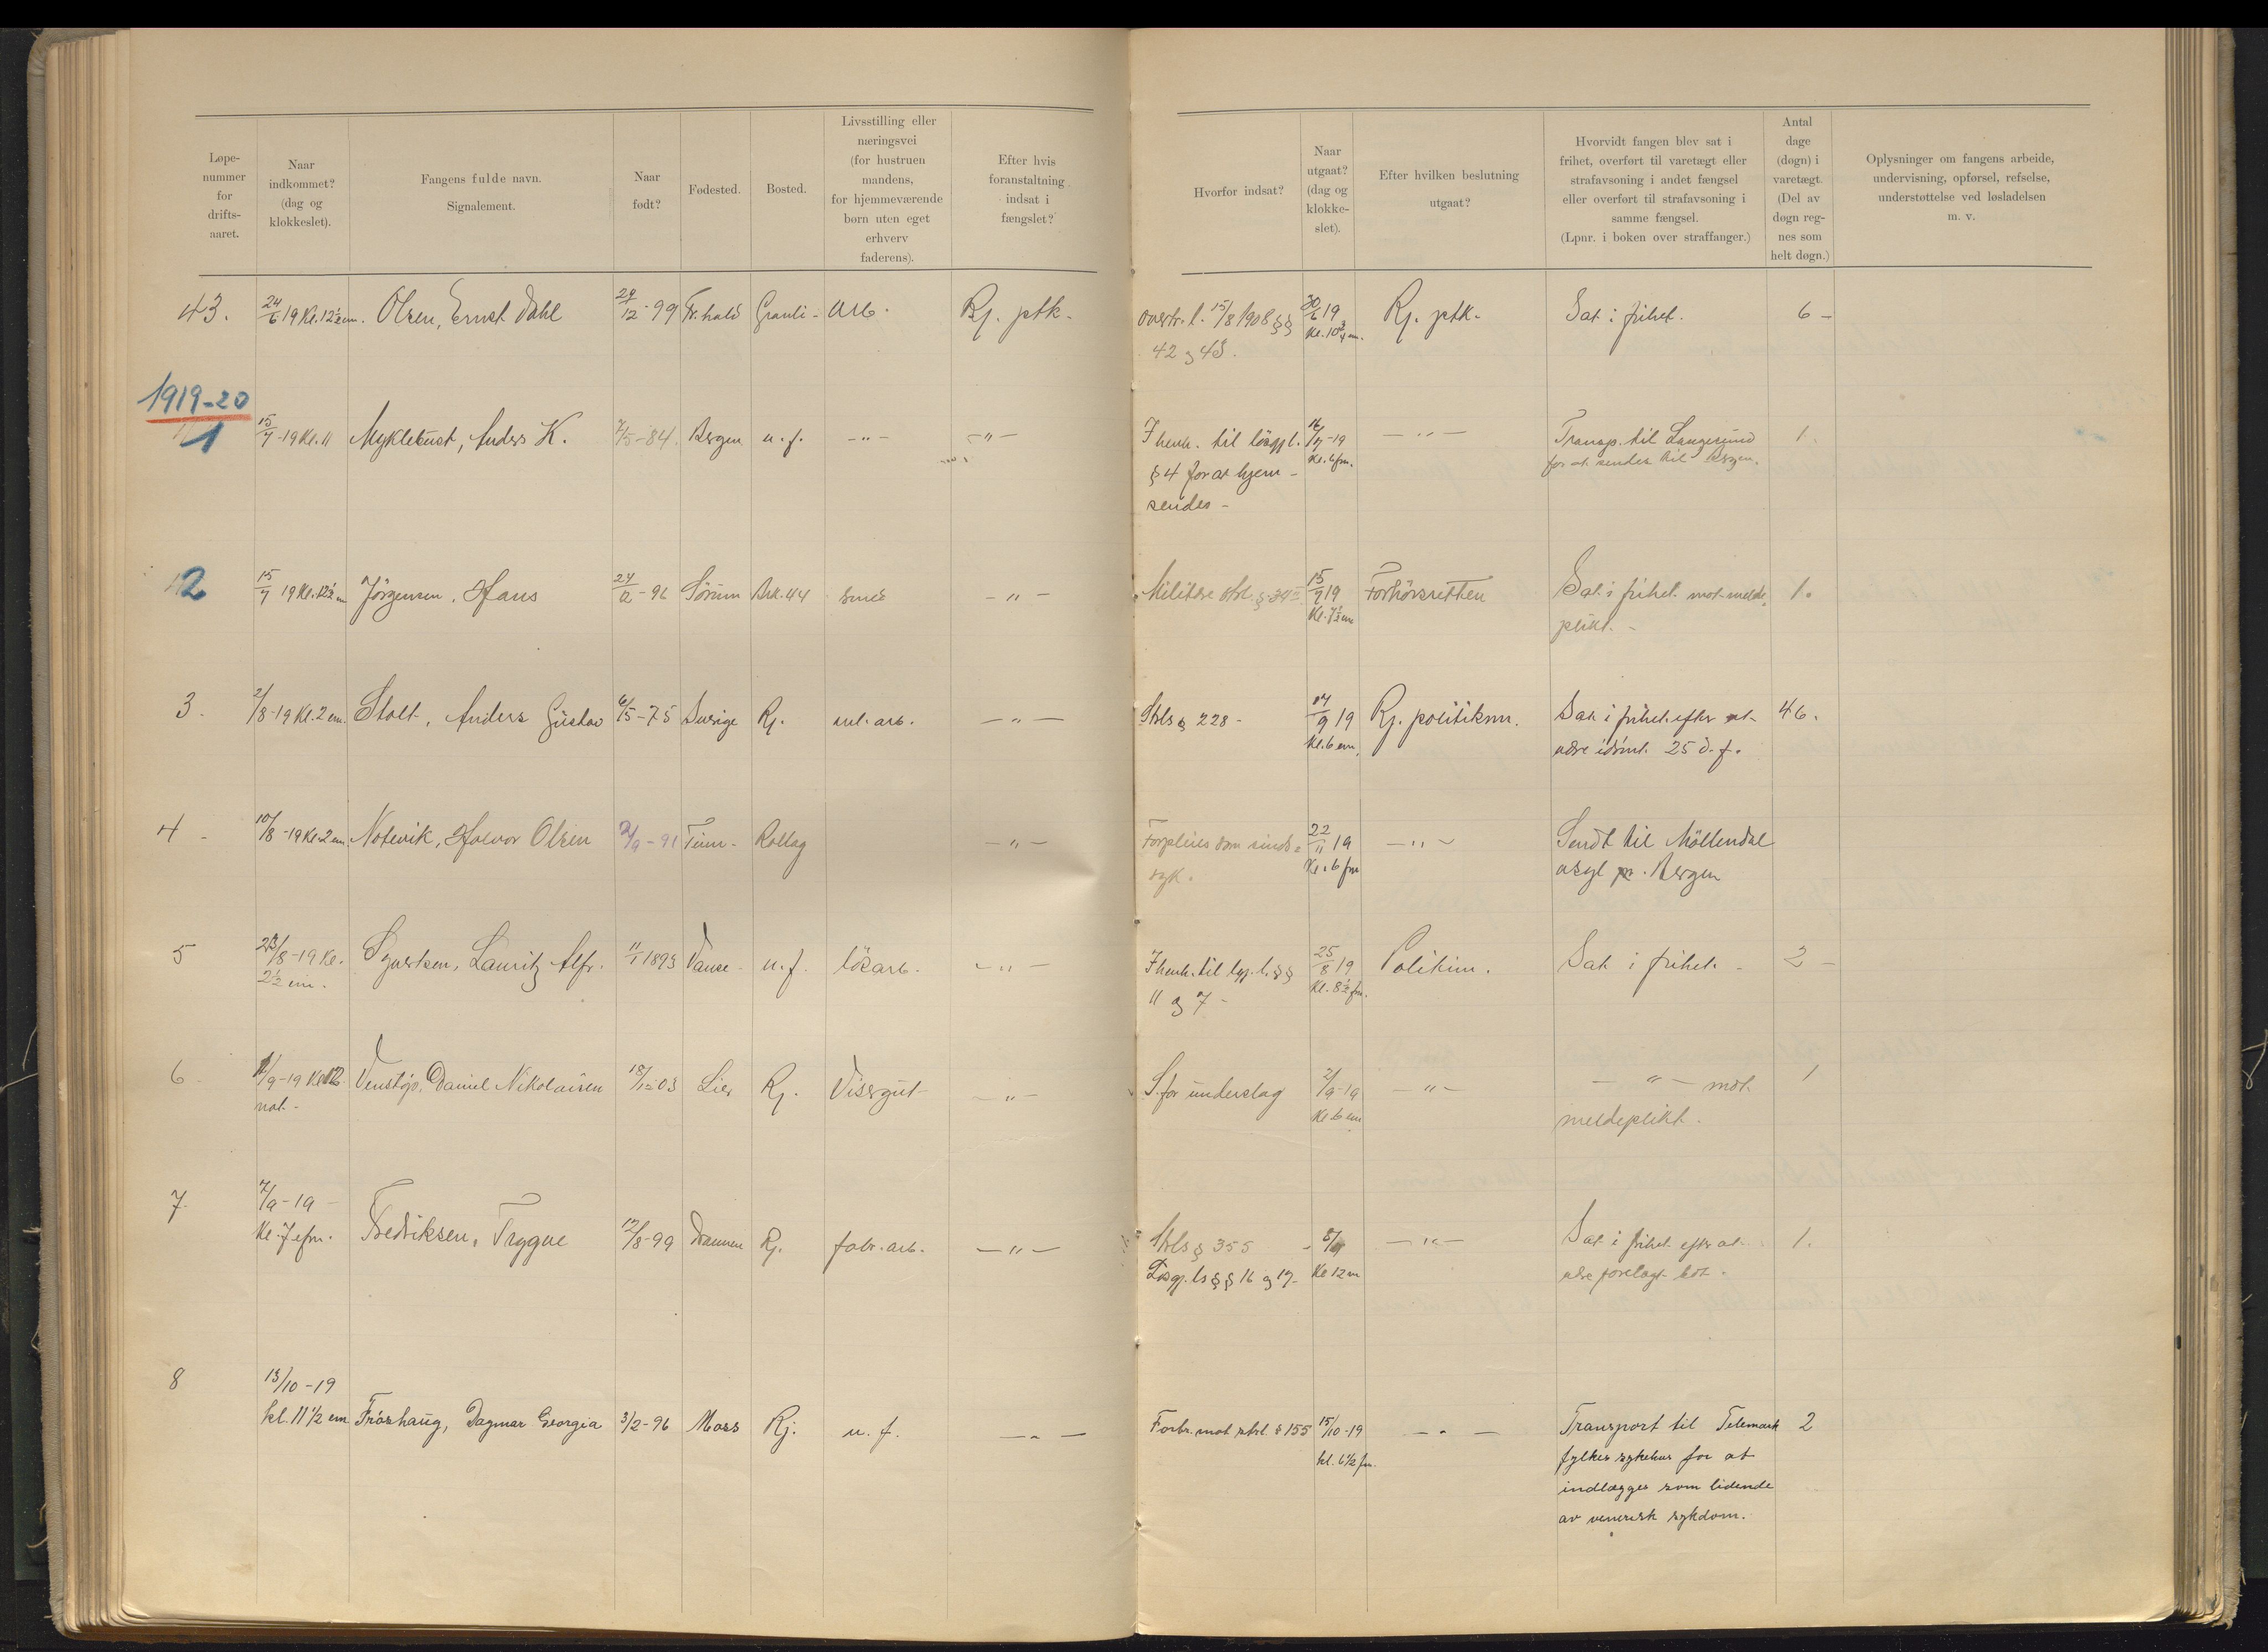 Løpe-
nummer
for
drifts-
aaret.
Naar
indkommet?
(dag og
klokkeslet).
Fangens fulde navn.
Signalement.
Naar
født?
Fødested.
Bosted.
Livsstilling eller
næringsvei
(for hustruen
mandens,
for hjemmeværende
børn uten eget
erhverv
faderens).
Efter hvis
foranstaltning
indsat i
fængslet?
Hvorfor indsat?
Naar
utgaat?
(dag og
klokke-
slet).
Efter hvilken beslutning
utgaat?
Hvorvidt fangen blev sat i
frihet, overført til varetægt eller
strafavsoning i andet fængsel
eller overført til strafavsoning i
samme fængsel.
(Lpnr. i boken over straffanger.)
Antal
dage
(døgn) i
varetægt.
(Del av
døgn reg-
nes som
helt døgn.)
Oplysninger om fangens arbeide,
undervisning, opførsel, refselse,
understøttelse ved løsladelsen
m. v.
43. 24/6 19 Kl. 12½ em. Olsen, Ernst Dahl 29/12-99 Fr.hald Grauli- Arb. Rj. ptk.
overtr. l. 15/8 1908 §§ 30/6 19 Rj. ptk. Sat i frihet. 6-
42 og 43. Kl. 10¾ em.
1919-20
1 15/7-19 Kl. 11 Myklebust, Anders K. 7/5-84. Bergen u. f. -"- -"-
I henh. til lösgjl. 16/7-19 -"- Transp. til Langesund 1.
§ 4 for at hjem- Kl. 6 fm. for at sendes til Bergen.
sendes-
2 15/9 19 Kl. 12½ em Jörgensen, Hans 24/12-96 Sörum Brk. 44 smed -"-
Militære strl. § 34 15/9 19 Forhörsretten Sat i frihet mot melde- 1.
Kl. 7½ em plikt.-
3. 2/8-19 Kl. 2 em. Stolt, Anders Gustav 6/5-75 Sverige Rj. anl. arb. -"-
Strls § 228- 17/9 19 Rj. politikm. Sat i frihet efter at 46.
Kl. 6 em. være idömt 25 d. f.
4- 10/8-19 Kl. 2 em. Notevik, Halvor Olsen 2/9-91 Tinn- Rollag -"-
Forpleies som sinds- 22/11 19 -"- Sendt til Möllendal
syk. Kl. 6 fm asyl pr. Bergen
5 23/8-19 Kl. Syvertsen, Lauritz Alfr. 11/1 1893 Vanse- u. f. lösarb. -"-
2½ em.
I henh. til lgj. l. §§ 25/8 19 Politim. Sat i frihet- 2-
11 og 7- Kl. 8½ fm.
6 1/9-19 Kl. 12 Venstöp, Daniel Nikolaisen 18/12-03 Lier Rj. Visergut- -"-
nat-
S. for underslag 2/9-19 -"- -"- mot 1
Kl. 6 em meldeplikt.
7. 7/9-19-
Kl. 7 efm. Fredriksen, Trygve 12/8-99 Drammen Rj. fabr. arb. -"-
Strls § 355 - 8/9 -"- Sat i frihet efter at 1.
Lösgj. ls §§ 16 og 17- Kl 12 m være forelagt bot-
8 13/10-19
kl. 11½ em Fröshaug, Dagmar Georgia 3/2-96 Moss Rj. u. f. -"-
Forbr. mot strl. § 155 15/10-19 -"- Transport til Telemark 2
kl. 6½ fm. fylkes sykehus for at
indlægges som lidende
av venerisk sykdom.